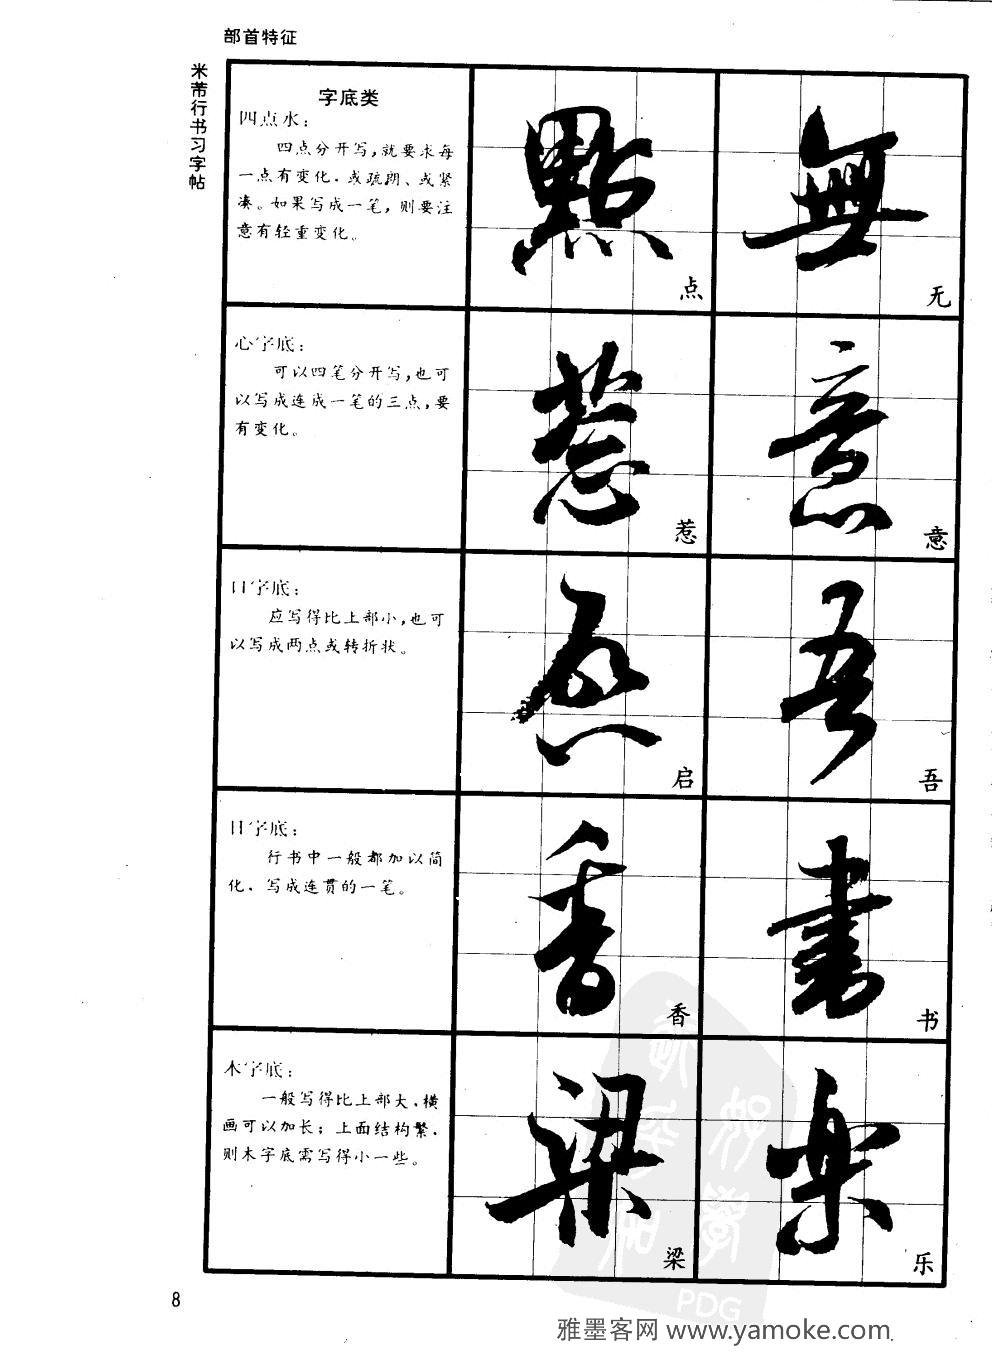 部首特征
米芾行书习字帖
字底类
四点水：
四点分开写，就要求每
一点有变化．或疏朗、或紧
凑。如果写成一笔，则要注
意有轻重变化。
點
点
無
无
心字底：
可以四笔分开写，也可
以写成连成一笔的三点，要
有变化。
惹
惹
意
意
口字底：
应写得比上部小，也可
以写成两点或转折状。
启
启
吾
吾
日字底：
行书中一般都加以简
化．写成连贯的一笔。
香
香
書
书
木字底：
一般写得比上部大．横
画可以加长；上面结构繁．
则木字底需写得小一些。
梁
梁
樂
乐
8
PDG
雅墨客网 www.yamoke.com